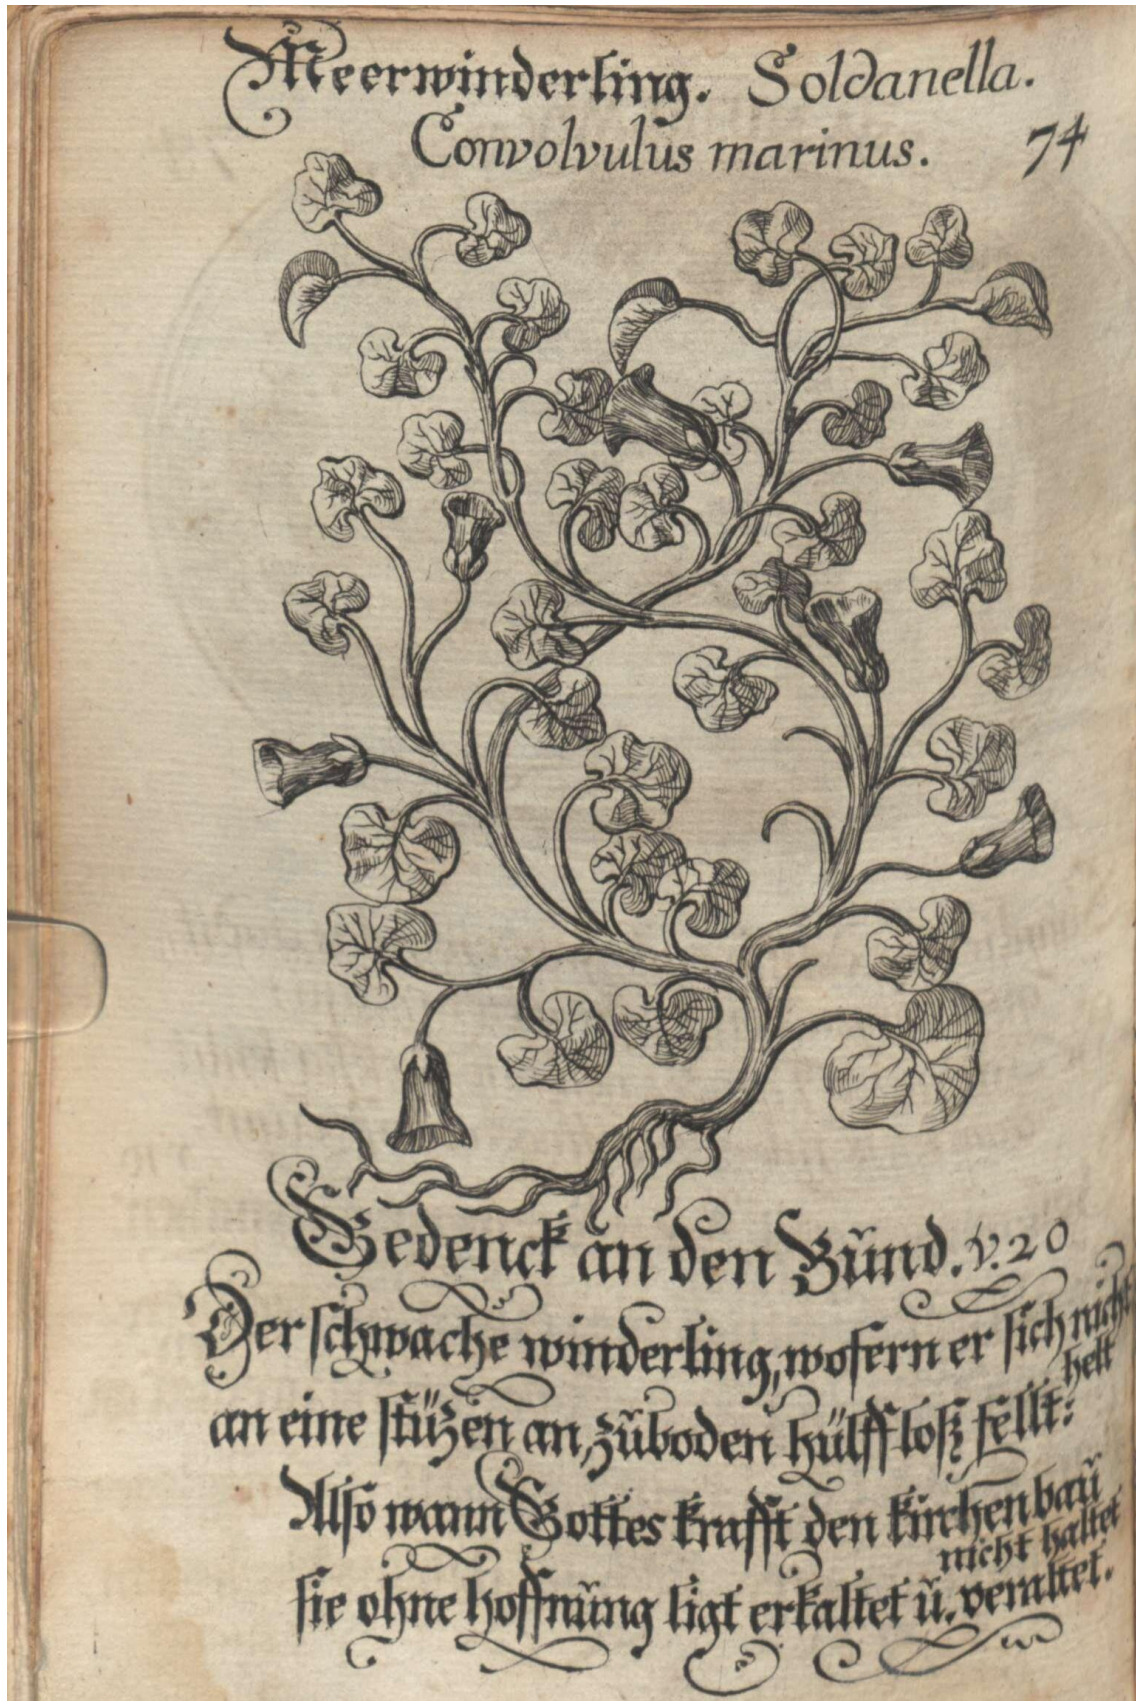 Meerwinderling. Soldanella.
Convolvulus marinus. 74
Gedenck an den Bŭnd. v. 20
Der schwache winderling, wofern er sich nicht
helt
an eine stüzen an, zŭboden hülffloß fellt:
Also wann Gottes krafft den kirchenbaŭ
nicht haltet
sie ohne hoffnŭng ligt erkaltet ŭ. veraltet.